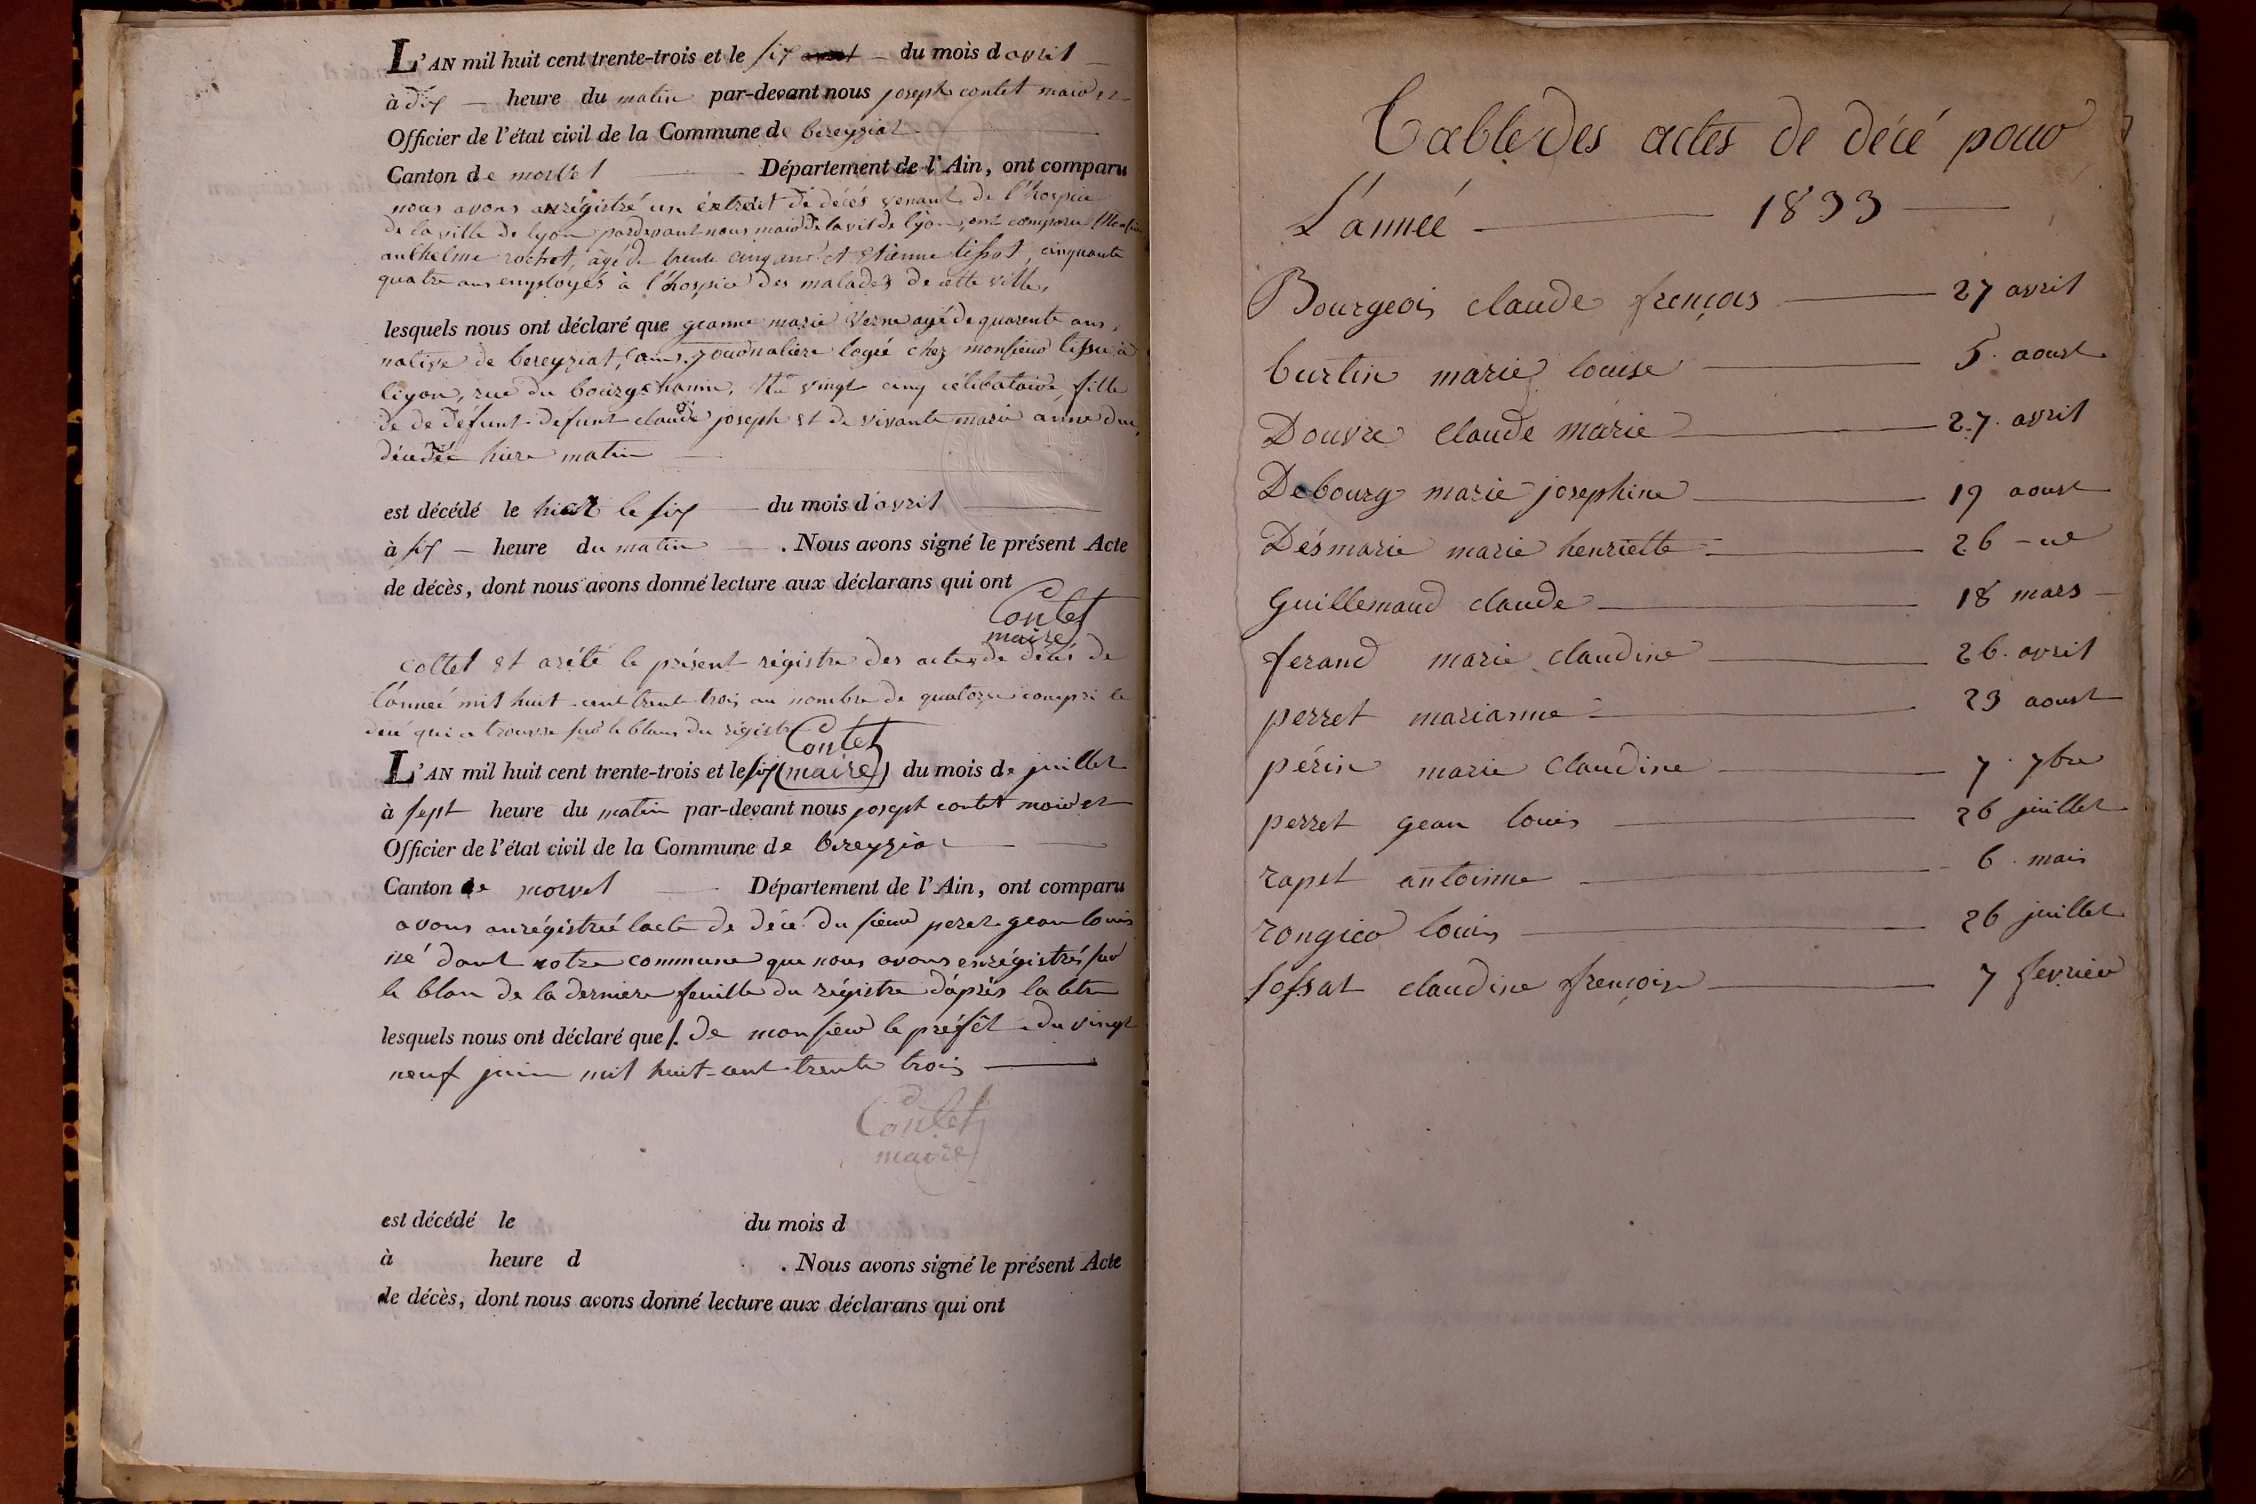 L'AN mil huit cent trente-trois et le six du mois d avril
à dix heure du matin par-devant nous joseph contet maire et
Officier de l'état civil de la Commune de bereyziat
Canton de Département de l'Ain, ont comparu
nous avons anrégistré un extrait de décés venant de l'hospice
de la ville de lyon pardevant nous maire de la vil de lyon, ont comparu
anthelme rochet, âgé de trente cinq ans et etienne tissot, cinquante
quatre ans employés à l'hospice des malades de cette ville,
lesquels nous ont déclaré que geanne marie Verne agé de quarente ans,
native de bereyziat, (ain) journaliere logée chez monsieur tissu à
liyon, rue du bourgchanin, No vingt cinq célibataire, fille
de de défunt defunt claude joseph et de vivante marie anne duc,
décédée hiere matin
est décédé le hier le six du mois d'avril
à six heure du matin . Nous avons signé le présent Acte
de décès, dont nous avons donné lecture aux déclarans qui ont
Contet
maire
Collet et arété le présent régistre des actes de décés de
l'année mil huit cent trente trois au nombre de quatorze compri le
décé qui a trouvre sur le blanc du régistre
Contet
L'AN mil huit cent trente-trois et le six (maire) du mois de juillet
à sept heure du matin par-devant nous joseph contet maire et
Officier de l'état civil de la Commune de bereyziat
Canton de Département de l'Ain, ont comparu
avons anrégistreé lacte de décé du sieur peret gean louis
né dant notre commune que nous avons enrégistrés sur
le blan de la derniere feuille du régistre d'aprés la letre
lesquels nous ont déclaré que /. de monsieur le préfêt du vingt
neuf juin mil huit cent trente trois
Contet
maire
est décédé le du mois d
à heure d . Nous avons signé le présent Acte
de décès, dont nous avons donné lecture aux déclarans qui ont
Table des actes de décé pour
L'année 1833
Bourgeois claude françois 27 avril
burtin marie louise 5. aoust
Douvre claude marie 27. avril
Debourg marie josephine 19 aoust
Désmarie marie henriette 26
Guillemaud claude 18 mars
ferand marie claudine 26. avril
perret marianne 23 aoust
périn marie claudine 7. 7bre
perret gean louis 26 juillet
rapet antoinne 6. mais
louis 26 juillet
sossat claudine françoise 7 fevrier